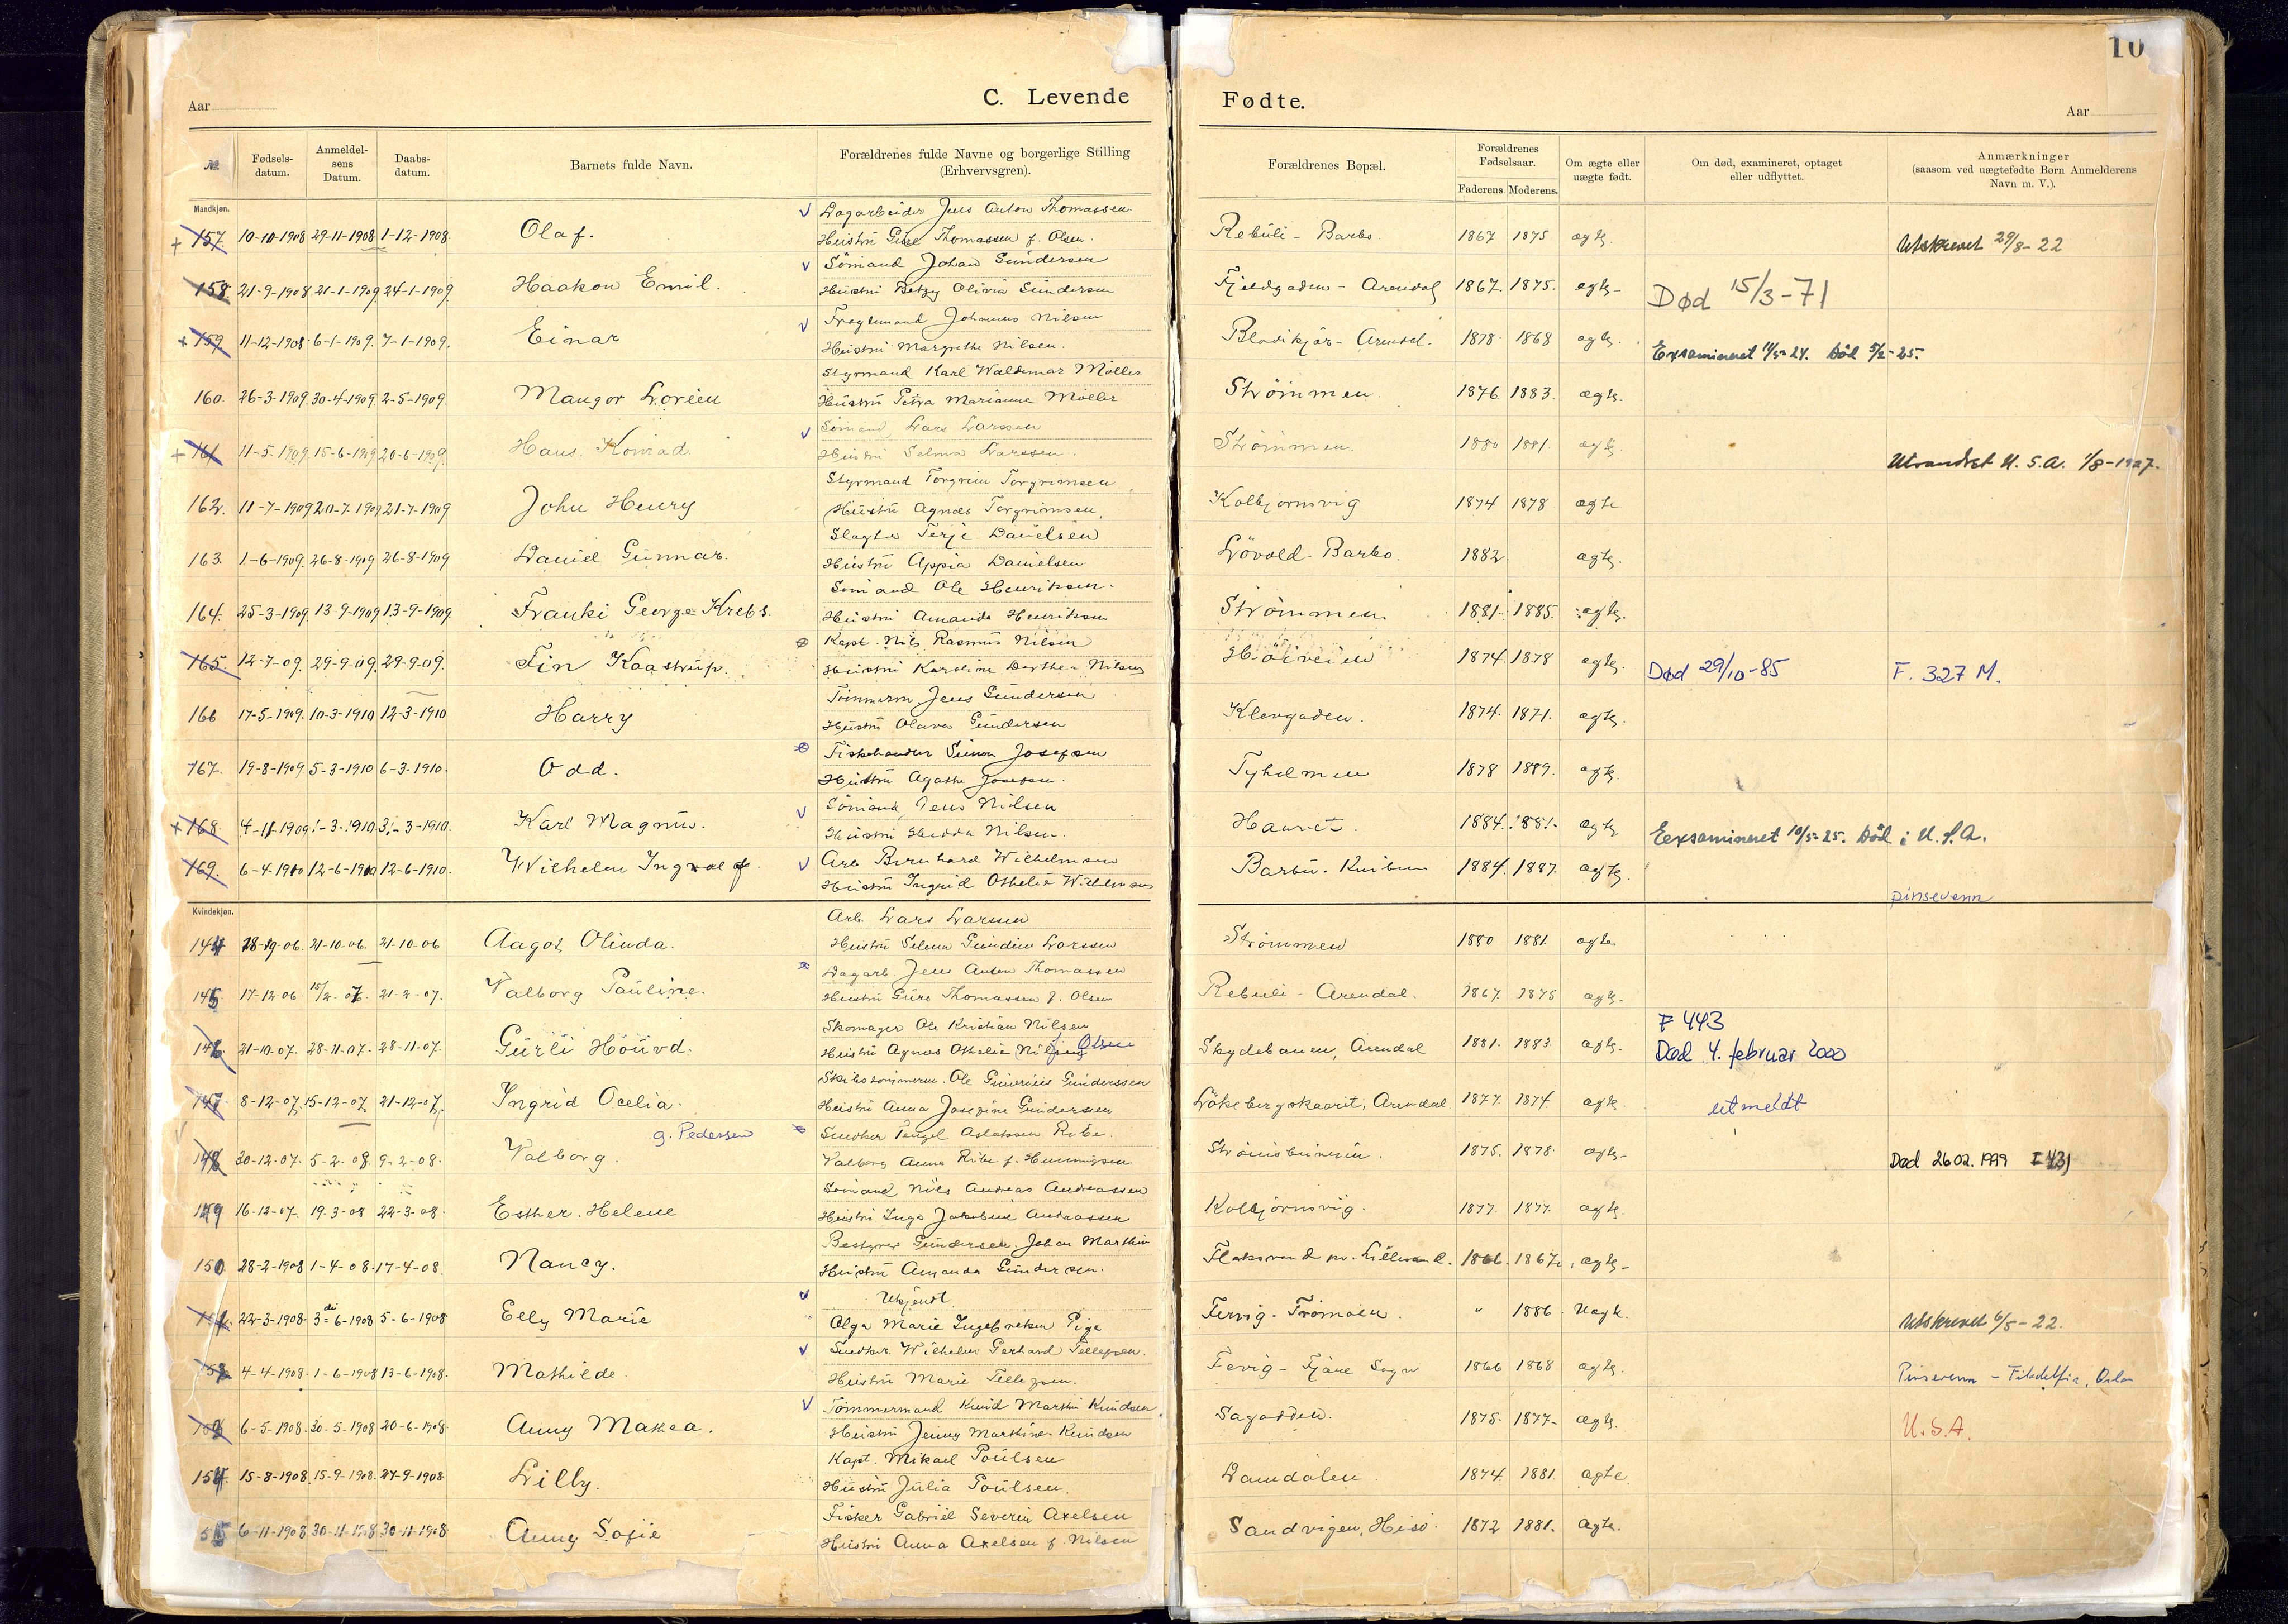 10
Aar
C. Levende
Fødte.
Aar
№
Fødsels-datum.
Anmeldel-sens Datum.
Daabs-datum.
Barnets fulde Navn.
Forældrenes fulde Navne og borgerlige Stilling (Erhvervsgren).
Forældrenes Bopæl.
Forældrenes Fødselsaar.
Faderens Moderens.
Om ægte eller uægte født.
Om død, examineret, optaget eller udflyttet.
Anmærkninger (saasom ved uægtefødte Børn Anmelderens Navn m. V.).
Mandkjøn.
Dagarbeider Jens Anton Thomassen
157. 10-10-1908 29-11-1908 1-12-1908. Olaf. Hustru Gure Thomassen f. Olsen. Rebuli - Barbo. 1867 1875 ægte. Utskrevet 29/8-22
Sömand Johan Gundersen
158. 21-9-1908 21-1-1909 24-1-1909. Haakon Emil. Hustru Betzy Olivia Gundersen Fjeldgaden - Arendal 1867. 1875. ægte- Død 15/3-71
Johannes Nilsen
159. 11-12-1908 6-1-1909. 7-1-1909. Einar Hustru Margrethe Nilsen. Blødekjær- Arendal. 1878 1868 ægte. Exsamineret 11/5-24. Död 5/2-25.
Styrmand Karl Waldemar Möller
160. 26-3-1909 30-4-1909. 2-5-1909. Mangor Hustru Petra Marianne Möller Strömmen. 1876 1883. ægte.
Sömand Lars Larssen
161 11-5-1909 15-6-1909 20-6-1909. Hans Konrad. Hustru Selma Larssen. Strömmen. 1880 1881. ægte. Utvandret U.S.A. 1/8-1927.
Styrmand Torgrim Torgrimsen
162. 11-7-1909 20-7-1909 21-7-1909 John Henry Hustru Agnes Torgrimsen. Kolbjornsvig 1874 1878 ægte
Slagter Terje Danielsen
163. 1-6-1909. 26-8-1909 26-8-1909 Daniel Gunnar. Hustru Appia Danielsen. Lövold - Barbo. 1882. ægte.
Sömand Ole Henriksen.
164. 25-3-1909. 13-9-1909 13-9-1909. Franki George Krebs. Hustru Amanda Henriksen Strömmen. 1881. 1885. ægte.
Kapt. Nils Rasmus Nilsen
165. 12-7-09. 29-9-09. 29-9-09. Fin Kaastrup. Hustru Karoline Dorthea Nilsen Höiveien 1874. 1878 ægte. Død 29/10-85 F. 327 M.
Tömmerm. Jens Gundersen
166 17-5-1909. 10-3-1910 12-3-1910 Harry Hustru Olava Gundersen Klevgaden. 1874. 1871. ægte.
Fiskehandler Simon Josefsen
167. 19-8-1909 5-3-1910 6-3-1910. Odd. Hustru Agathe Josefsen. Tyholmen 1878 1889. ægte.
Sömand Jens Nilsen
168. 4-11-1909 -3-1910. 3-1910. Karl Magnus. Hustru Hedda Nilsen. 1884. 1881. ægte Eexsamineret 10/5-25. Död i U.S.A.
Arb Bernhard Wilhelmsen
169. 6-4-1910 12-6-1910 12-6-1910. Wilhelm Ingvolf. Hustru Ingrid Othelie Wilhelmsen Barbu. 1884. 1887. ægte. pinsevenn
Kvindekjøn.
Arb. Lars Larssen
144 18-10-06. 21-10-06. 21-10-06 Aagot Olinda. Hustru Selma Gundine Larssen Strömmen 1880 1881. ægte
Dagarb. Jens Anton Thomassen
145 17-12-06 15/2-07. 21-2-07. Valborg Pauline. Hustru Gure Thomassen f. Olsen Rebuli - Arendal. 1867. 1875 ægte.
Skomager Ole Kristian Nilsen F 443
146. 21-10-07. 28-11-07. 28-11-07. Gurli Höuvd. Hustru Agnes Othelie Nilsen f. Olsen Skydebanen, Arendal 1881. 1883 ægte. Død 4. februar 2000
Skibstömmerm. Ole Gunerius Gunderssen
147. 8-12-07. 15-12-07. 21-12-07. Ingrid Ocelia. Hustru Anna Josefine Gundersen Lökebergskaaret, Arendal 1877. 1874 ægte. utmeldt
g. Pedersen Snedker Tengel Aslaksen Ribe.
148 30-12-07. 5-2-08. 9-2-08. Valborg. Valborg Anna Ribe f. Henningsen Strömsbunun. 1875. 1878 ægte- Død 26 02. 1999 I 431
Sömand Nils Andreas Andreassen
149 16-12-07. 19-3-08 22-3-08. Esther Helene Hustru Inga Jakobine Andreassen Kolbjörnsvig. 1877. 1877. ægte.
Bestyrer Gundersen. Johan Marthin
150. 28-2-1908 1-4-08. 17-4-08. Nancy. Hustru Amanda Gundersen. Flaksvand pr. Lillesand. 1866. 1867. ægte-
Ukjendt
151. 22-3-1908. 3die 6-1908 5-6-1908 Elly Marie Olga Marie Ingebretsen Pige Fervig - Tromöen. " 1886 Uægte. Utskrevet 6/5-22.
Snedker. Wilhelm Gerhard Tellefsen.
152 4-4-1908. 1-6-1908 13-6-1908. Mathilde. Hustru Marie Tellefsen. Fevig - Fjære Sogn 1866 1868 ægte. Pinsevenn - Filadelfia, Oslo
Tömmermand Knud Marthin Knudsen
153 6-5-1908. 30-5-1908 20-6-1908. Anny Mathea. Hustru Jenny Marthine Knudsen Sagodden. 1875. 1877- ægte. U.S.A.
Kapt. Mikael Poulsen
154. 15-8-1908. 15-9-1908. 27-9-1908 Lilly. Hustru Julia Poulsen. Damdalen. 1874. 1881. ægte
Fisker Gabriel Severin Axelsen
55 6-11-1908 30-11-1908 30-11-1908 Anny Sofie Hustru Anna Axelsen f. Nilsen Sandvigen, Hisö. 1872 1881. ægte.